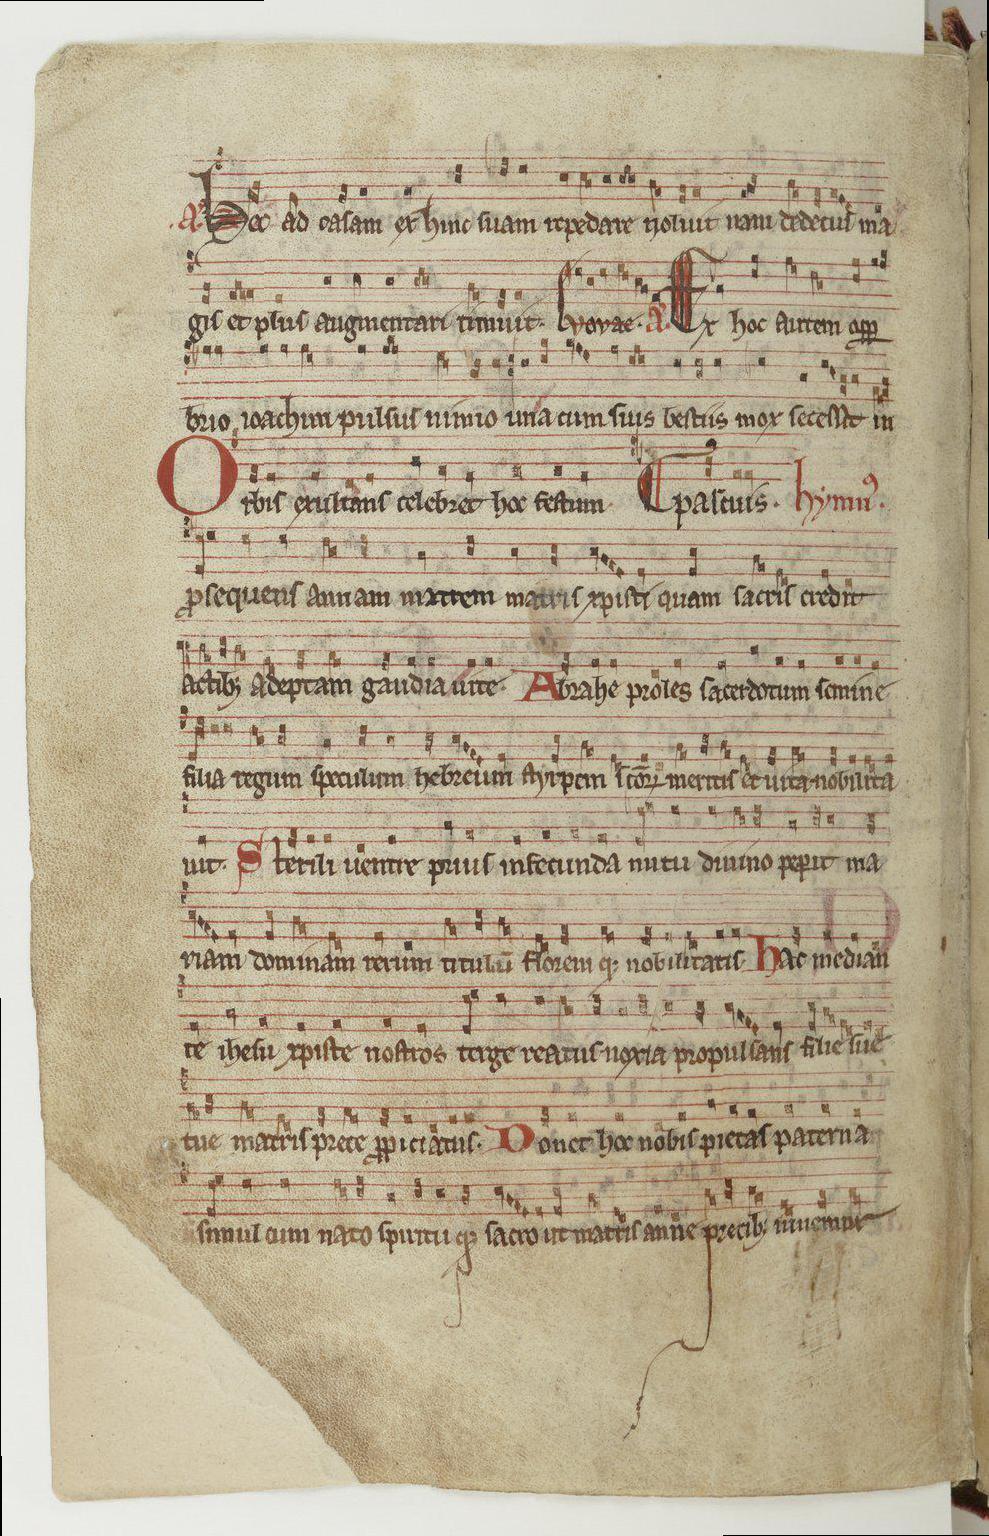 A Nec ad casam ex hinc suam repedare noluit nam dedecus ma
gis et plus augmentari timuit. Evovae. A Ex hoc autem opp
brio ioachim pulsus nimio una cum suis bestiis mox secessit in
Orbis exultans celebret hoc festum et pascuis. hymnꝰ.
ꝓsequens annam matrem matris xpisti quam sacris credit
actibꝫ adeptam gaudia uite. Abrahe proles sacerdotum semine
filia regum speculum hebreum styrpem scōꝝ meritis et uita nobilita
uit. Sterili uentre prius infecunda nutu diuino peperit ma
riam dominam rerum titulū florem qꝫ nobilitatis hac median
te ihesu xpiste nostros terge reatus noxia propulsans filie sue
tue matris prece ꝓpiciatus. Donet hoc nobis pietas paterna
simul cum nato spiritu qꝫ sacro ut matris anne precibꝫ iuuemur